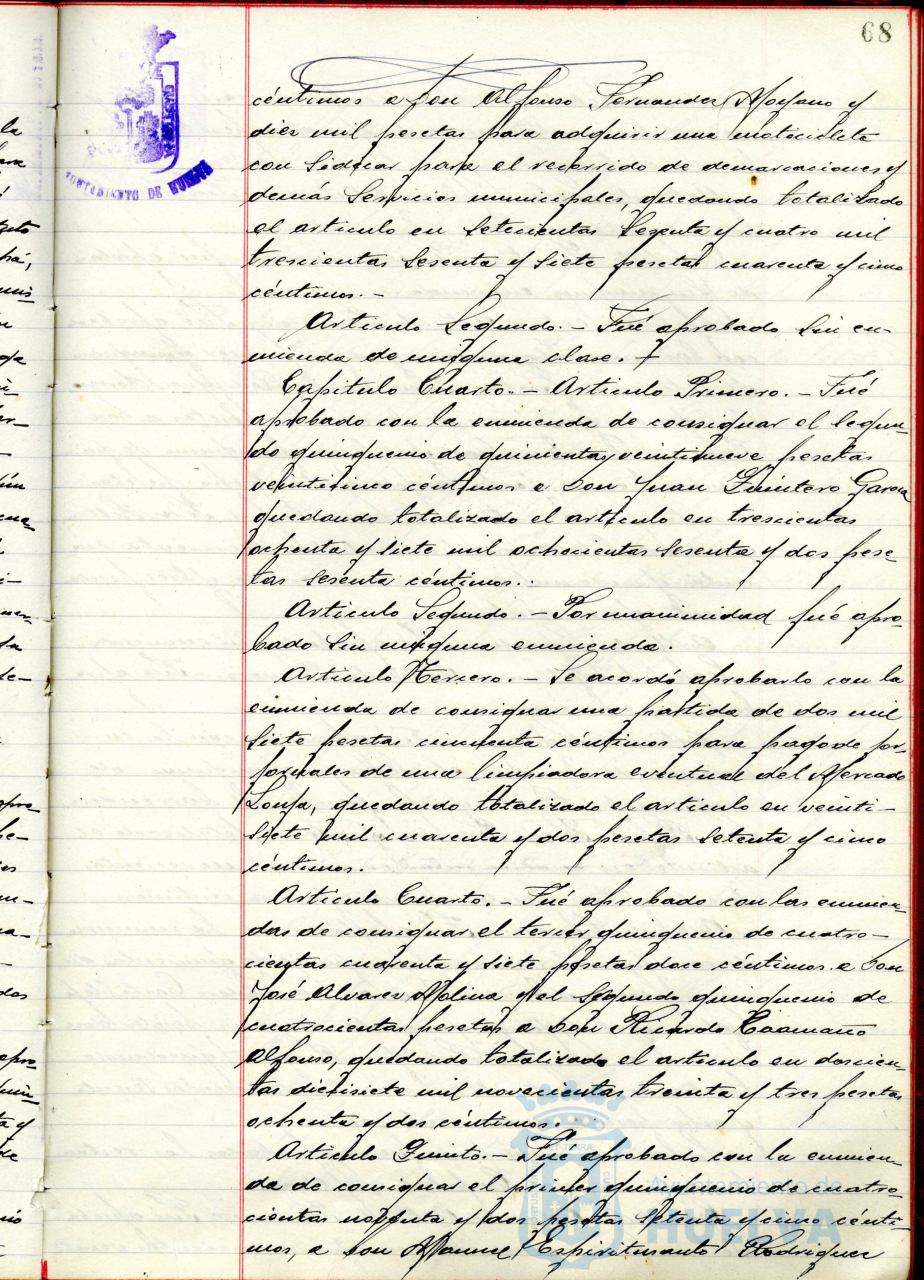 68
AYUNTAMIENTO DE HUELVA
céntimos a Don Alfonso Fernandez Moyano y
diez mil pesetas para adquirir una motocicleta
con sidecar para el recorrido de demarcaciones y
demás servicios municipales, quedando totalizado
el articulo en setecientas sesenta y cuatro mil
trescientas sesenta y siete pesetas cuarenta y cinco
céntimos.-
Articulo Segundo.- Fué aprobado sin en-
mienda de ninguna clase.
Capitulo Cuarto.- Articulo Primero.- Fué
aprobado con la enmienda de consignar el segun-
do quinquenio de quinientas veintinueve pesetas
veinticinco céntimos a Don Juan Quintero Garcia
quedando totalizado el articulo en trescientas
ochenta y siete mil ochocientas sesenta y dos pese-
tas sesenta céntimos.
Articulo Segundo.- Por unanimidad fué apro-
bado sin ninguna enmienda.
Articulo Tercero.- Se acordó aprobarlo con la
enmienda de consignar una partida de dos mil
siete pesetas cincuenta céntimos para pago de jor-
jornales de una limpiadora eventual del Mercado
Lonja, quedando totalizado el articulo en veinti-
siete mil cuarenta y dos pesetas setenta y cinco
céntimos.
Articulo Cuarto.- Fué aprobado con las enmien-
das de consignar el tercer quinquenio de cuatro-
cientas cuarenta y siete pesetas doce céntimos a Don
José Alvarez Molina y el segundo quinquenio de
cuatrocientas pesetas a Don Ricardo Caamaño
Alfonso, quedando totalizado el articulo en doscien-
tas diecisiete mil novecientas treinta y tres pesetas
ochenta y dos céntimos.
Articulo Quinto.- Fué aprobado con la enmien-
da de consignar el primer quinquenio de cuatro-
cientas noventa y dos pesetas setenta y cinco cénti-
mos, a Don Manuel Espiritusanto Rodriguez
Ayuntamiento de
HUELVA